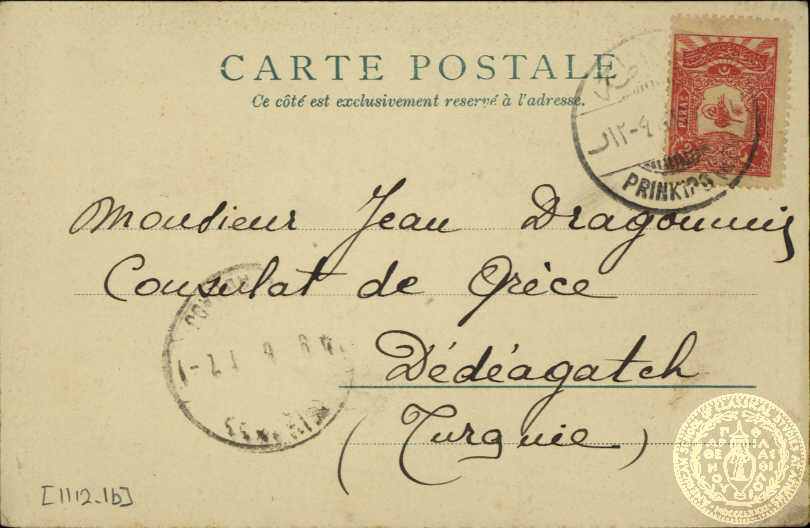 CARTE POSTALE
Ce côté est exclusivement reservé à l'adresse.
PRINKIPO
Monsieur Jean Dragoumis
Consulat de Grèce
Dédéagatch
(Turquie)
[1112_1b]